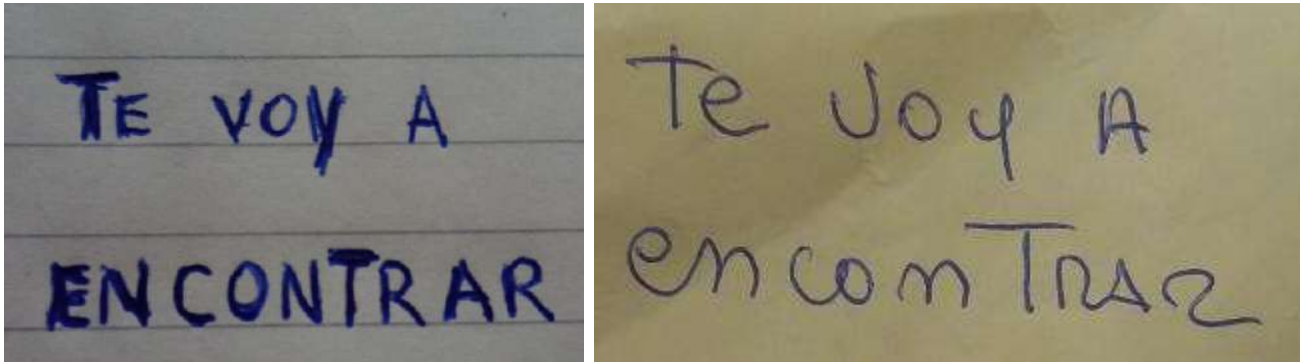 TE VOY A
ENCONTRAR
Te Voy A
enconTRAR